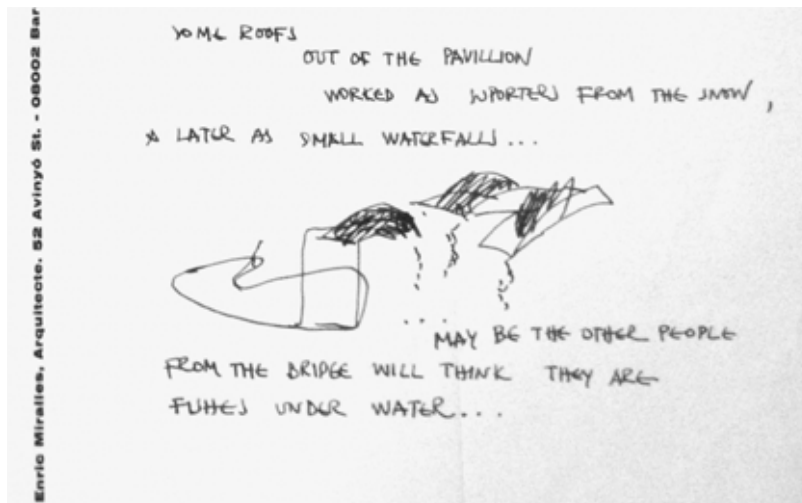 Enric Miralles, Arquitecte. 52 Avinyó St. - 08002 Bar
SOME ROOFS
OUT OF THE PAVILLION
WORKED AS SUPORTERS FROM THE SNOW,
LATER AS SMALL WATERFALLS...
... MAY BE THE OTHER PEOPLE
FROM THE BRIDGE WILL THINK THEY ARE
FISHES UNDER WATER...